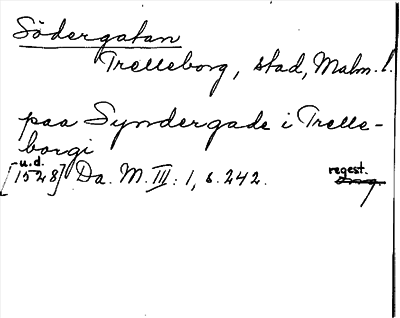 Södergatan
Trelleborg, stad, Malm. l.
paa Syndergade i Trelle-
borgi
u.d.
[1528] Da. M. III: 1, s. 242.
regest.